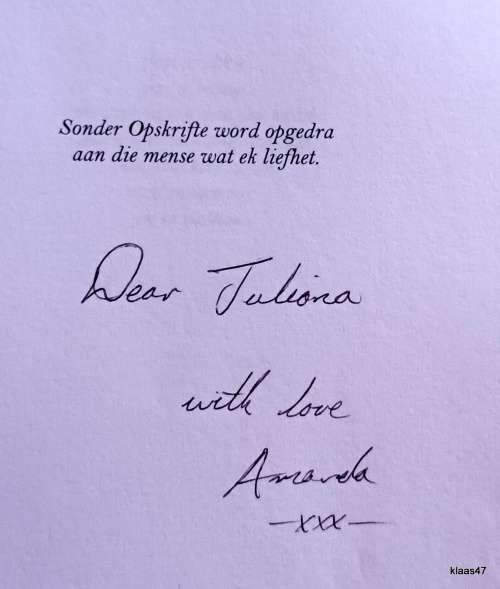 Sonder Opskrifte word opgedra
aan die mense wat ek liefhet.
Dear Juliana
with love
Amanda
-xxx-
klaas47